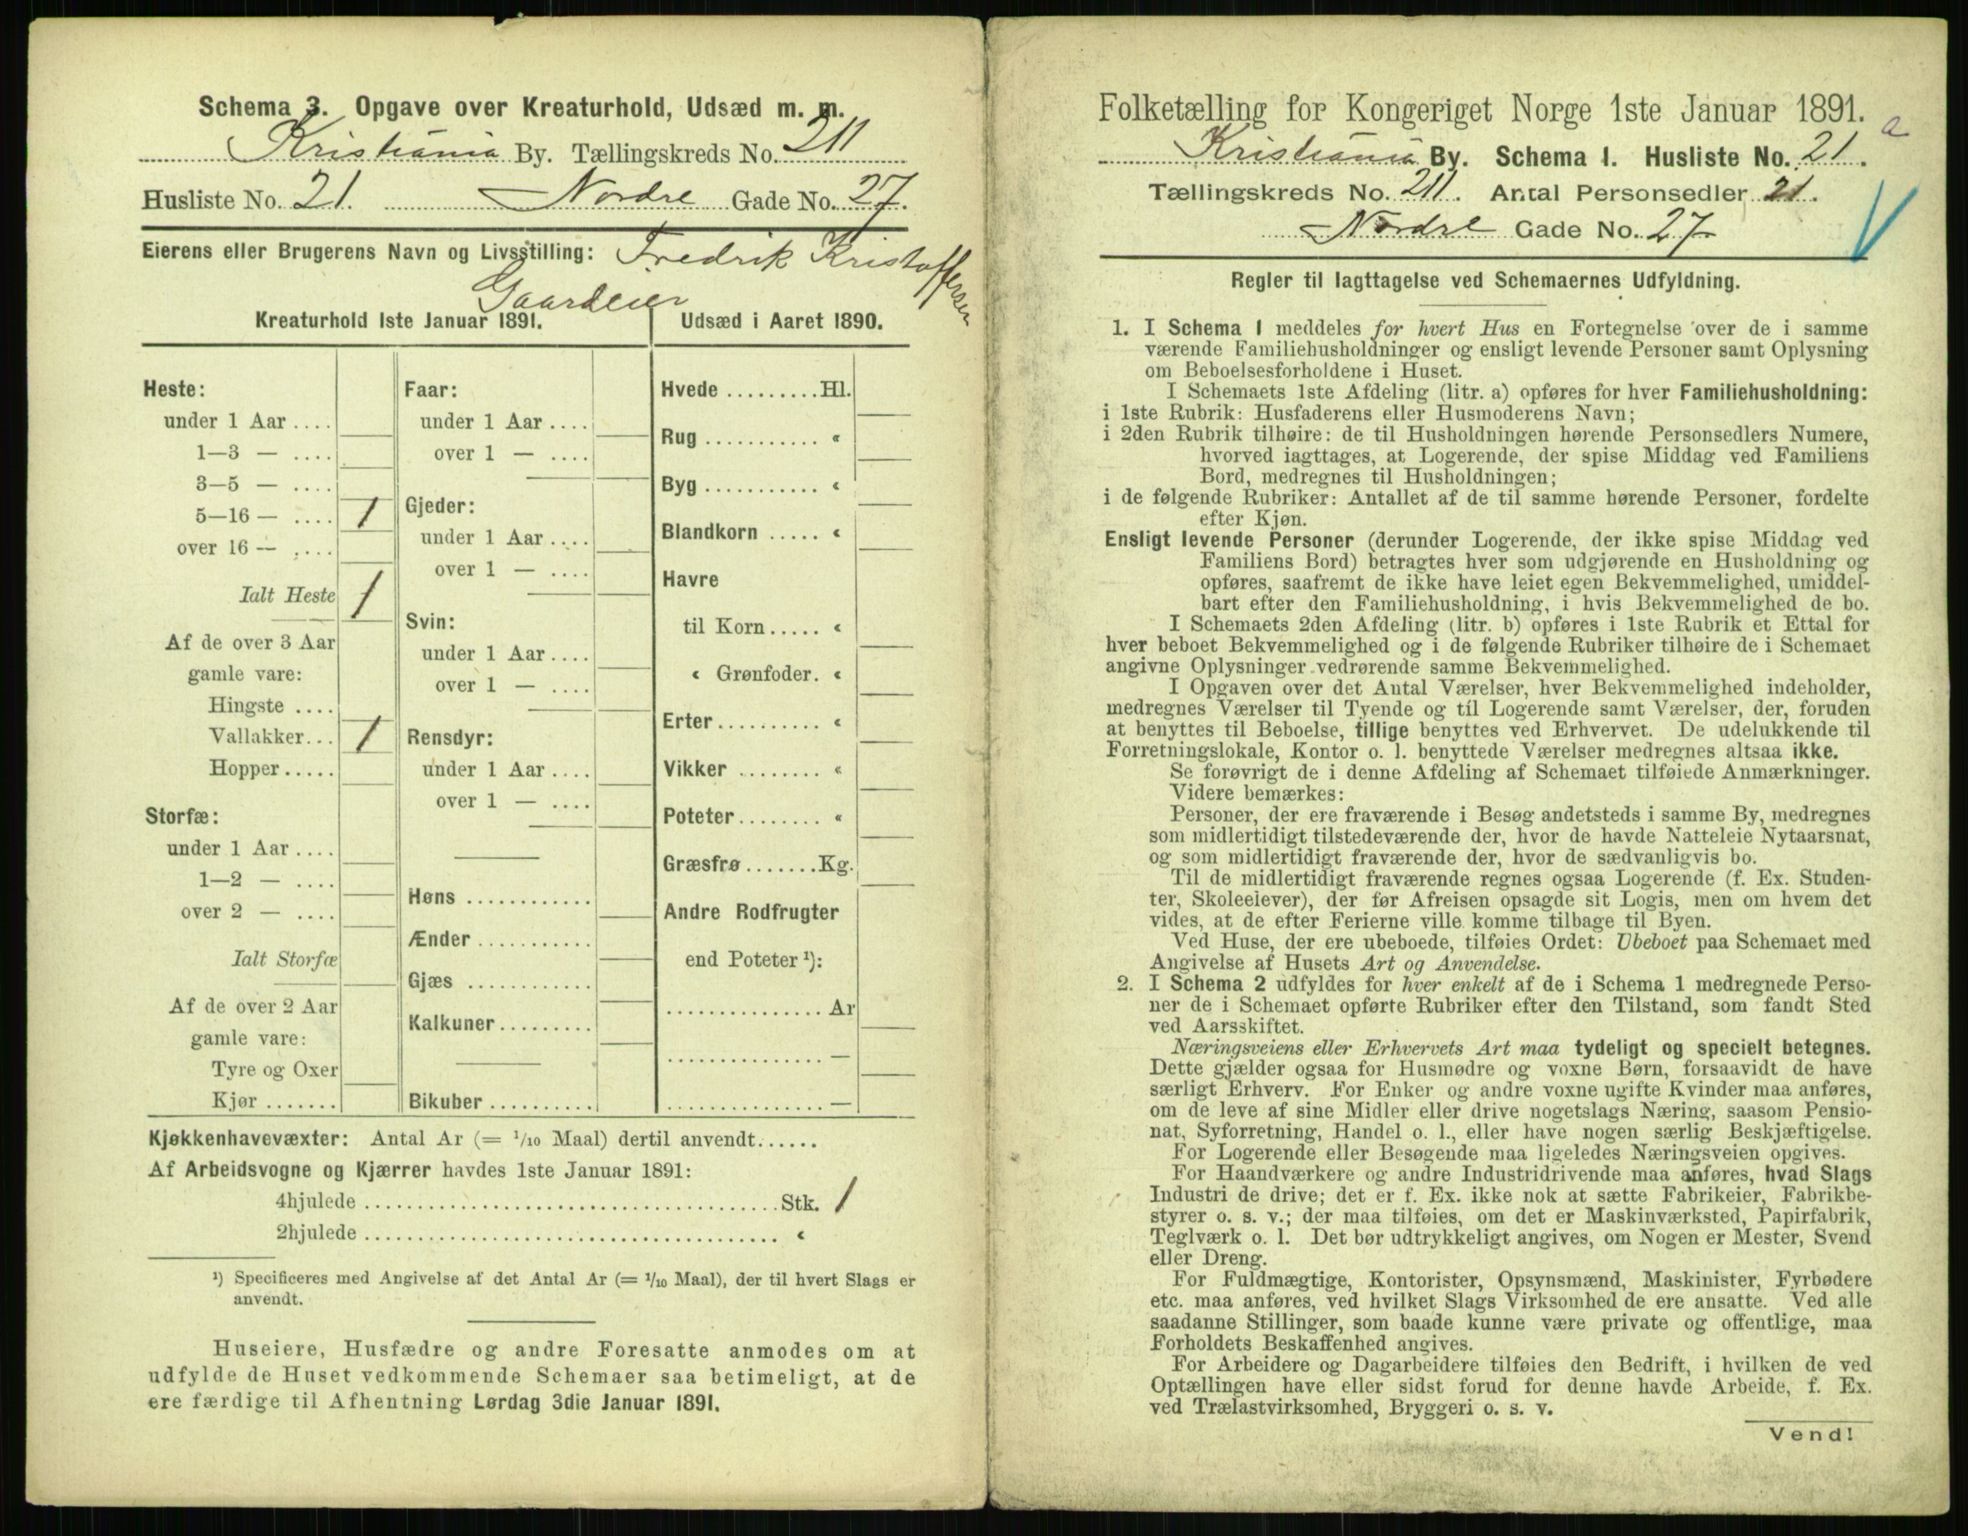 Schema 3. Opgave over Kreaturhold, Udsæd m. m.
Kristiania By. Tællingskreds No. 211
Husliste No. 21. Nordre Gade No. 27.
Eierens eller Brugerens Navn og Livsstilling: Fredrik Kristoffersen
Gaardeier
Kreaturhold 1ste Januar 1891.
Heste:
under 1 Aar ....
1—3 — ....
3—5 — ....
5—16 — .... 1
over 16 — ....
Ialt Heste 1
Af de over 3 Aar
gamle vare:
Hingste ....
Vallakker... 1
Hopper.....
Storfæ:
under 1 Aar ....
1—2 — ....
over 2 — ....
Ialt Storfæ
Af de over 2 Aar
gamle vare:
Tyre og Oxer
Kjør .......
Faar:
under 1 Aar ....
over 1 — ....
Gjeder:
under 1 Aar ....
over 1 — ....
Svin:
under 1 Aar ....
over 1 — ....
Rensdyr:
under 1 Aar ....
over 1 — ....
Høns ............
Ænder...........
Gjæs ............
Kalkuner.........
Bikuber ..........
Udsæd i Aaret 1890.
Hvede .........Hl.
Rug ........... «
Byg ........... «
Blandkorn ..... «
Havre
til Korn..... «
« Grønfoder. «
Erter.......... «
Vikker ........ «
Poteter........ «
Græsfrø .......Kg.
Andre Rodfrugter
end Poteter ¹):
............... Ar
............... —
............... —
Kjøkkenhavevæxter: Antal Ar (= 1/10 Maal) dertil anvendt......
Af Arbeidsvogne og Kjærrer havdes 1ste Januar 1891:
4hjulede ....................................... Stk. 1
2hjulede ....................................... «
¹) Specificeres med Angivelse af det Antal Ar (= 1/10 Maal), der til hvert Slags er
anvendt.
Huseiere, Husfædre og andre Foresatte anmodes om at
udfylde de Huset vedkommende Schemaer saa betimeligt, at de
ere færdige til Afhentning Lørdag 3die Januar 1891.
Folketælling for Kongeriget Norge 1ste Januar 1891.
a
Kristiania By. Schema 1. Husliste No. 21.
Tællingskreds No. 211. Antal Personsedler 21.
Nordre Gade No. 27
Regler til Iagttagelse ved Schemaernes Udfyldning.
1. I Schema 1 meddeles for hvert Hus en Fortegnelse over de i samme
værende Familiehusholdninger og ensligt levende Personer samt Oplysning
om Beboelsesforholdene i Huset.
I Schemaets 1ste Afdeling (litr. a) opføres for hver Familiehusholdning:
i 1ste Rubrik: Husfaderens eller Husmoderens Navn;
i 2den Rubrik tilhøire: de til Husholdningen hørende Personsedlers Numere,
hvorved iagttages, at Logerende, der spise Middag ved Familiens
Bord, medregnes til Husholdningen;
i de følgende Rubriker: Antallet af de til samme hørende Personer, fordelte
efter Kjøn.
Ensligt levende Personer (derunder Logerende, der ikke spise Middag ved
Familiens Bord) betragtes hver som udgjørende en Husholdning og
opføres, saafremt de ikke have leiet egen Bekvemmelighed, umiddel-
bart efter den Familiehusholdning, i hvis Bekvemmelighed de bo.
I Schemaets 2den Afdeling (litr. b) opføres i 1ste Rubrik et Ettal for
hver beboet Bekvemmelighed og i de følgende Rubriker tilhøire de i Schemaet
angivne Oplysninger vedrørende samme Bekvemmelighed.
I Opgaven over det Antal Værelser, hver Bekvemmelighed indeholder,
medregnes Værelser til Tyende og til Logerende samt Værelser, der, foruden
at benyttes til Beboelse, tillige benyttes ved Erhvervet. De udelukkende til
Forretningslokale, Kontor o. l. benyttede Værelser medregnes altsaa ikke.
Se forøvrigt de i denne Afdeling af Schemaet tilføiede Anmærkninger.
Videre bemærkes:
Personer, der ere fraværende i Besøg andetsteds i samme By, medregnes
som midlertidigt tilstedeværende der, hvor de havde Natteleie Nytaarsnat,
og som midlertidigt fraværende der, hvor de sædvanligvis bo.
Til de midlertidigt fraværende regnes ogsaa Logerende (f. Ex. Studen-
ter, Skoleelever), der før Afreisen opsagde sit Logis, men om hvem det
vides, at de efter Ferierne ville komme tilbage til Byen.
Ved Huse, der ere ubeboede, tilføies Ordet: Ubeboet paa Schemaet med
Angivelse af Husets Art og Anvendelse.
2. I Schema 2 udfyldes for hver enkelt af de i Schema 1 medregnede Perso-
ner de i Schemaet opførte Rubriker efter den Tilstand, som fandt Sted
ved Aarsskiftet.
Næringsveiens eller Erhvervets Art maa tydeligt og specielt betegnes.
Dette gjælder ogsaa for Husmødre og voxne Børn, forsaavidt de have
særligt Erhverv. For Enker og andre voxne ugifte Kvinder maa anføres,
om de leve af sine Midler eller drive nogetslags Næring, saasom Pensio-
nat, Syforretning, Handel o. l., eller have nogen særlig Beskjæftigelse.
For Logerende eller Besøgende maa ligeledes Næringsveien opgives.
For Haandværkere og andre Industridrivende maa anføres, hvad Slags
Industri de drive; det er f. Ex. ikke nok at sætte Fabrikeier, Fabrikbe-
styrer o. s. v.; der maa tilføies, om det er Maskinværksted, Papirfabrik,
Teglværk o. l. Det bør udtrykkeligt angives, om Nogen er Mester, Svend
eller Dreng.
For Fuldmægtige, Kontorister, Opsynsmænd, Maskinister, Fyrbødere
etc. maa anføres, ved hvilket Slags Virksomhed de ere ansatte. Ved alle
saadanne Stillinger, som baade kunne være private og offentlige, maa
Forholdets Beskaffenhed angives.
For Arbeidere og Dagarbeidere tilføies den Bedrift, i hvilken de ved
Optællingen have eller sidst forud for denne havde Arbeide, f. Ex.
ved Trælastvirksomhed, Bryggeri o. s. v.
Vend!